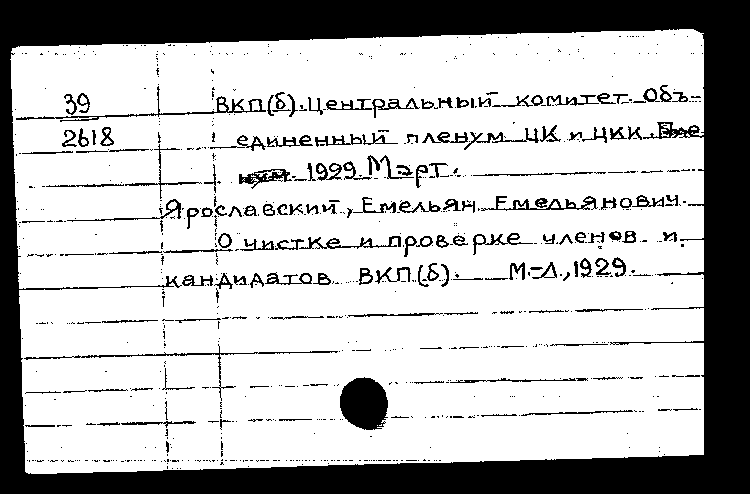 39
2618
ВКП(б). Центральный комитет. Объ-
единенный пленум ЦК и ЦКК.
1929. Март.
Ярославский, Емельян Емельянович.
О чистке и проверке членов и
кандидатов ВКП(б). М-Л, 1929.